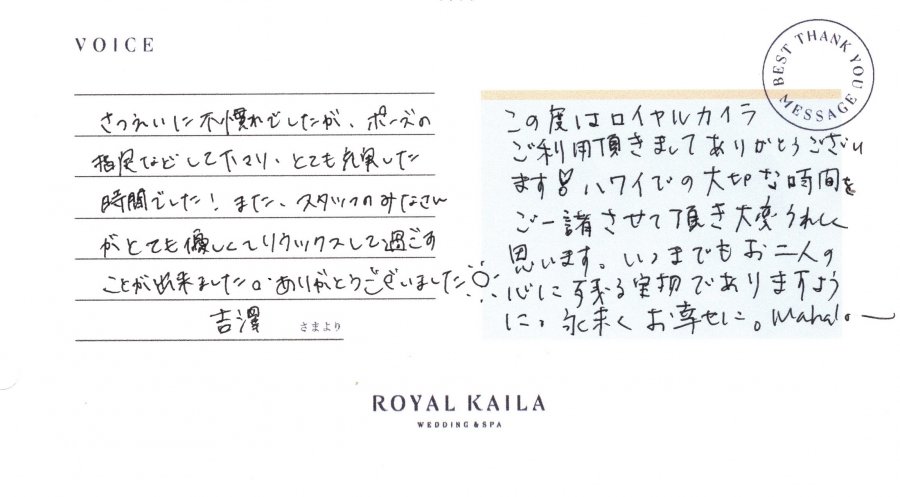 VOICE
BEST THANK YOU MESSAGE
さつえいに不慣れでしたが、ポーズの
指実などして下さり、とても充実した
時間でした！また、スタッフのみなさん
がとても優しくてリラックスして過ごす
ことが出来ました。ありがとうございました
吉澤 さまより
この度はロイヤルカイラ
ご利用頂きましてありがとうござい
ます ハワイでの大切な時間を
ご一諸させて頂き大変うれしく
思います。いつまでもお二人の
心に残る宝物でありますよう
に。永末くお幸せに。Mahalo
ROYAL KAILA
WEDDING & SPA